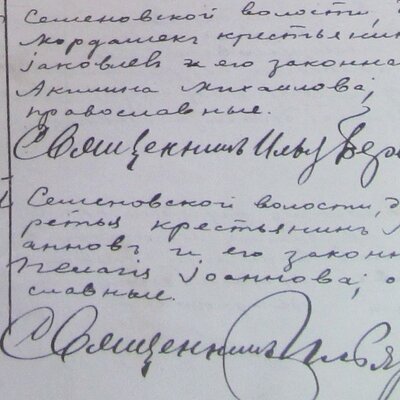 Семеновской волости,
Мордашек крестьянин
Іаковлев и его законна
Акилина Михаилова,
православные.
Священникъ Илья Бер
Семеновской волости, д
ретья крестьянинъ
анновъ и его законн
Пелагія Іоаннова; о
славные.
Священникъ Илья